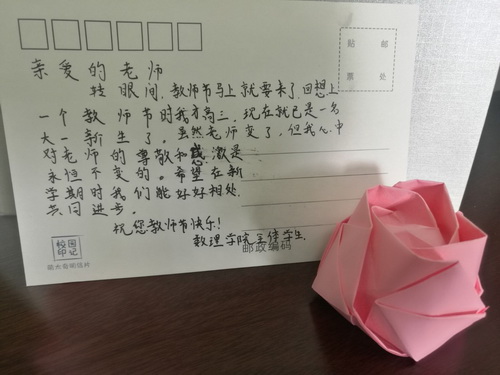 贴 邮
票 处
亲爱的老师
转眼间,教师节马上就要来了.回想上
一个教师节时我方高三,现在就已是一名
大一新生了,虽然老师变了,但我心中
对老师的尊敬和感激是
永恒不变的。希望在新
学期时我们能好好相处
共同进步。
祝您教师节快乐!
数理学院全体学生.
邮政编码
校园
印记